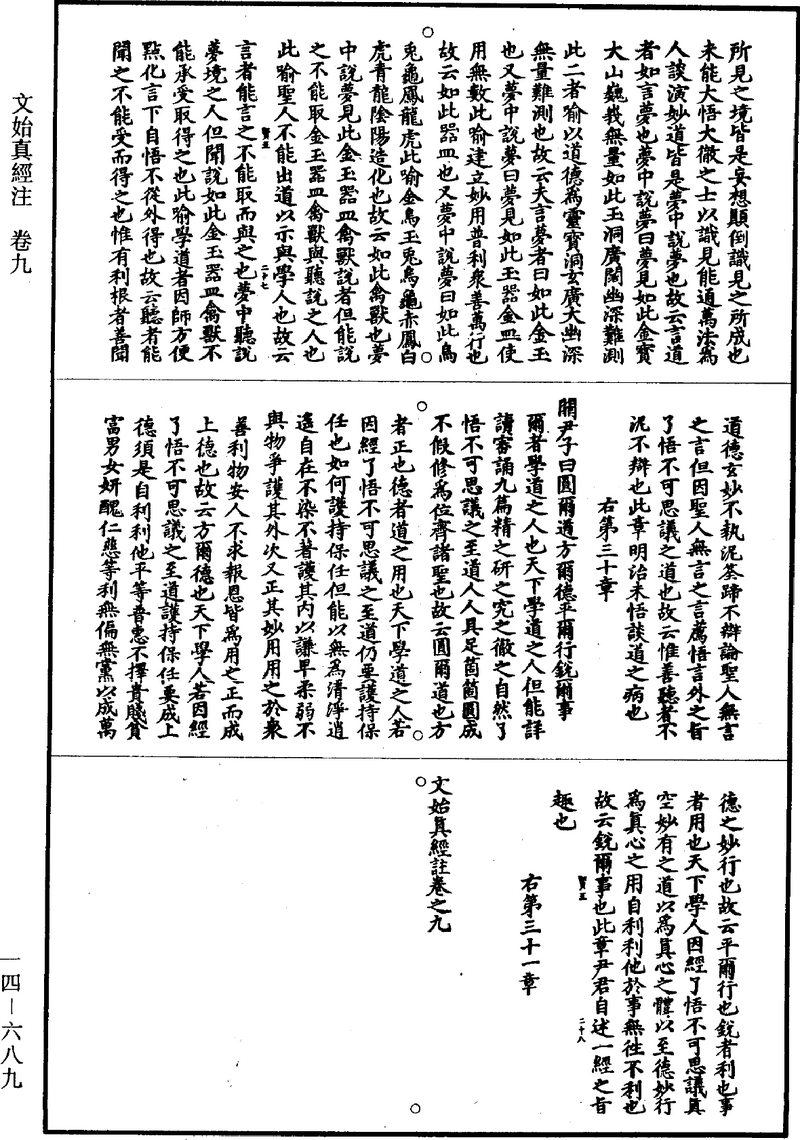 所見之境皆是妄想顛倒識見之所成也
未能大悟大徹之士以識見能通萬法為
人談演妙道皆是夢中說夢也故云言道
者如言夢也夢中說夢曰夢見如此金寶
大山巍峩無量如此玉洞廣闊幽深難測
此二者喻以道德為靈寶洞玄廣大幽深
無量難測也故云夫言夢者曰如此金玉
也又夢中說夢曰夢見如此玉器金皿使
用無數此喻建立妙用普利衆善萬行也
故云如此器皿也又夢中說夢曰如此烏
兎龜鳳龍虎此喻金烏玉兎烏龜赤鳳白
虎青龍陰陽造化也故云如此禽獸也夢
中說夢見此金玉器皿禽獸說者但能說
之不能取金玉器皿禽獸與聽說之人也
此喻聖人不能出道以示與學人也故云
賢五
二十七
言者能言之不能取而與之也夢中聽說
夢境之人但聞說如此金玉器皿禽獸不
能承受取得之也此喻學道者因師方便
點化言下自悟不從外得也故云聽者能
聞之不能受而得之也惟有利根者善聞
道德玄妙不執泥筌蹄不辯論聖人無言
之言但因聖人無言之言薦悟言外之旨
了悟不可思議之道也故云惟善聽者不
泥不辯也此章明治未悟談道之病也
右第三十章
關尹子曰圓爾道方爾德平爾行銳爾事
爾者學道之人也天下學道之人但能詳
讀審誦九篇精之研之究之徹之自然了
悟不可思議之至道人人具足箇箇圓成
不假修為位齊諸聖也故云圓爾道也方
者正也德者道之用也天下學道之人若
因經了悟不可思議之至道仍要護持保
任也如何護持保任但能以無為清淨逍
遙自在不染不著護其內以謙卑柔弱不
與物爭護其外次又正其妙用用之於衆
善利物安人不求報恩皆為用之正而成
上德也故云方爾德也天下學人若因經
了悟不可思議之至道護持保任要成上
德須是自利利他平等普惠不擇貴賤貧
富男女妍醜仁慈等利無偏無黨以成萬
德之妙行也故云平爾行也銳者利也事
者用也天下學人因經了悟不可思議真
空妙有之道以為真心之體以至德妙行
為真心之用自利利他於事無往不利也
故云銳爾事也此章尹君自述一經之旨
賢五
二十八
趣也
右第三十一章
文始真經註卷之九
文始真經注　卷九
一四—六八九